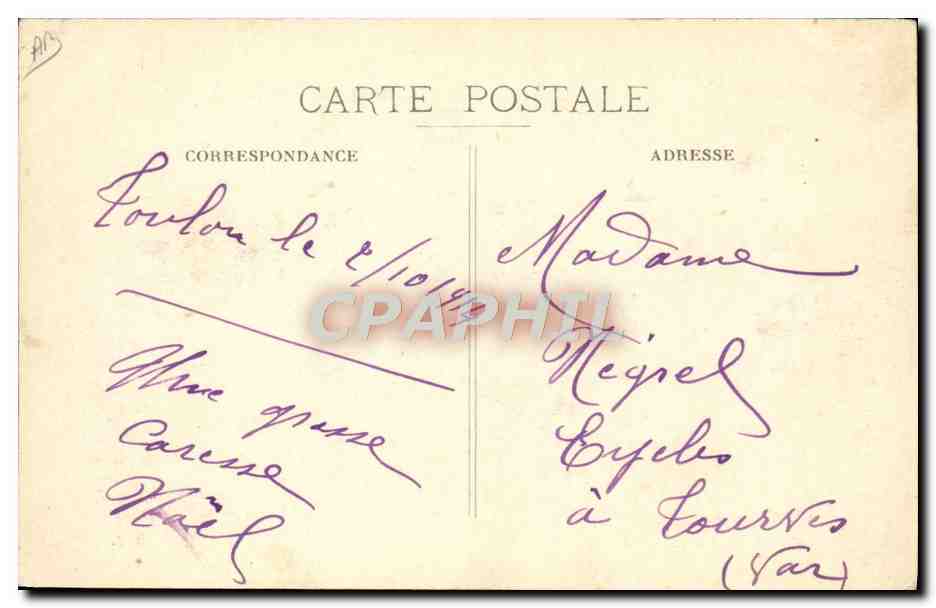 AB
CARTE POSTALE
CORRESPONDANCE
Toulon le
Une grosse
Caresse
Noël
ADRESSE
Madame
Négrel
Cycles
à Tourves
(Var)
CPAPHIL